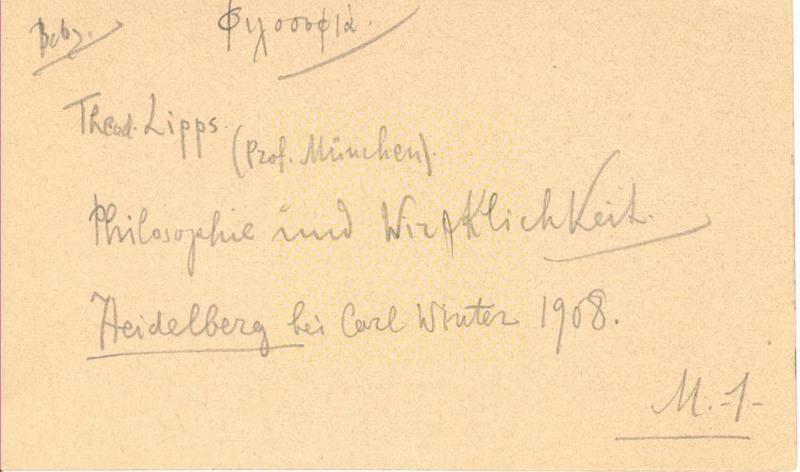 Φιλοσοφιά.
Theod. Lipps. (Prof. München).
Philosophie und Wirklichkeit.
Heidelberg bei Carl Winter 1908.
M. -1-